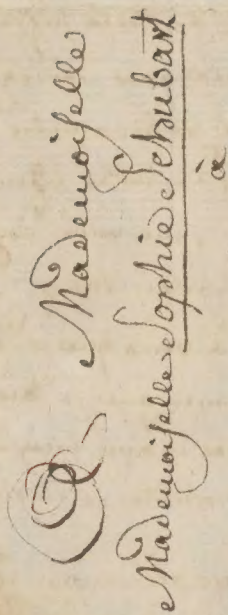 A Mademoiselle
Mademoiselle Sophie Schubart
à